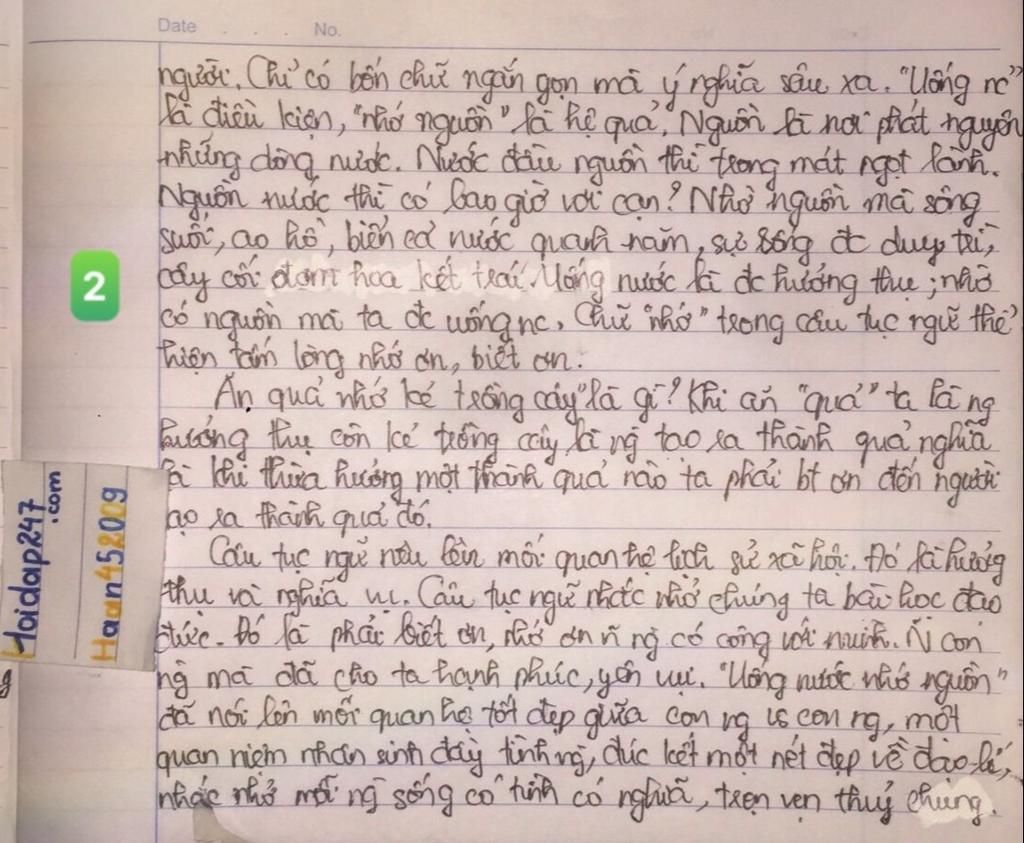 Date . . . No.
người. Chỉ có bốn chữ ngắn gọn mà ý nghĩa sâu xa. "Uống nc"
là điều kiện, "nhớ nguồn" là hệ quả. Nguồn là nơi phát nguyên
những dòng nước. Nước đầu nguồn thì trong mát ngọt lành.
Nguồn nước thì có bao giờ vơi cạn? Nhờ nguồn mà sông
suối, ao hồ, biển cả nước quanh năm, sự sống đc duy trì,
2
cây cối đơm hoa kết trái. Uống nước là đc hưởng thụ; nhờ
có nguồn mà ta đc uống nc. Chữ "nhớ" trong câu tục ngữ thể
hiện tấm lòng nhớ ơn, biết ơn.
Ăn quả nhớ kẻ trồng cây" là gì? Khi ăn "quả" ta là ng
hưởng thụ còn kẻ trồng cây là ng tạo ra thành quả nghĩa
là khi thừa hưởng một thành quả nào ta phải bt ơn đến người
tạo ra thành quả đó.
Hoidap247
.com
Haan452009
Câu tục ngữ nêu lên mối quan hệ lịch sử xã hội. Đó là hưởng
thụ và nghĩa vụ. Câu tục ngữ nhắc nhở chúng ta bài học đạo
đức. Đó là phải biết ơn, nhớ ơn ~n ng có công với mình. ~N con
ng mà đã cho ta hạnh phúc, yên vui. "Uống nước nhớ nguồn"
đã nói lên mối quan hệ tốt đẹp giữa con ng vs con ng, một
quan niệm nhân sinh đầy tình ng, đúc kết một nét đẹp về đạo lí,
nhắc nhở mỗi ng sống có tình có nghĩa, trọn vẹn thuỷ chung.